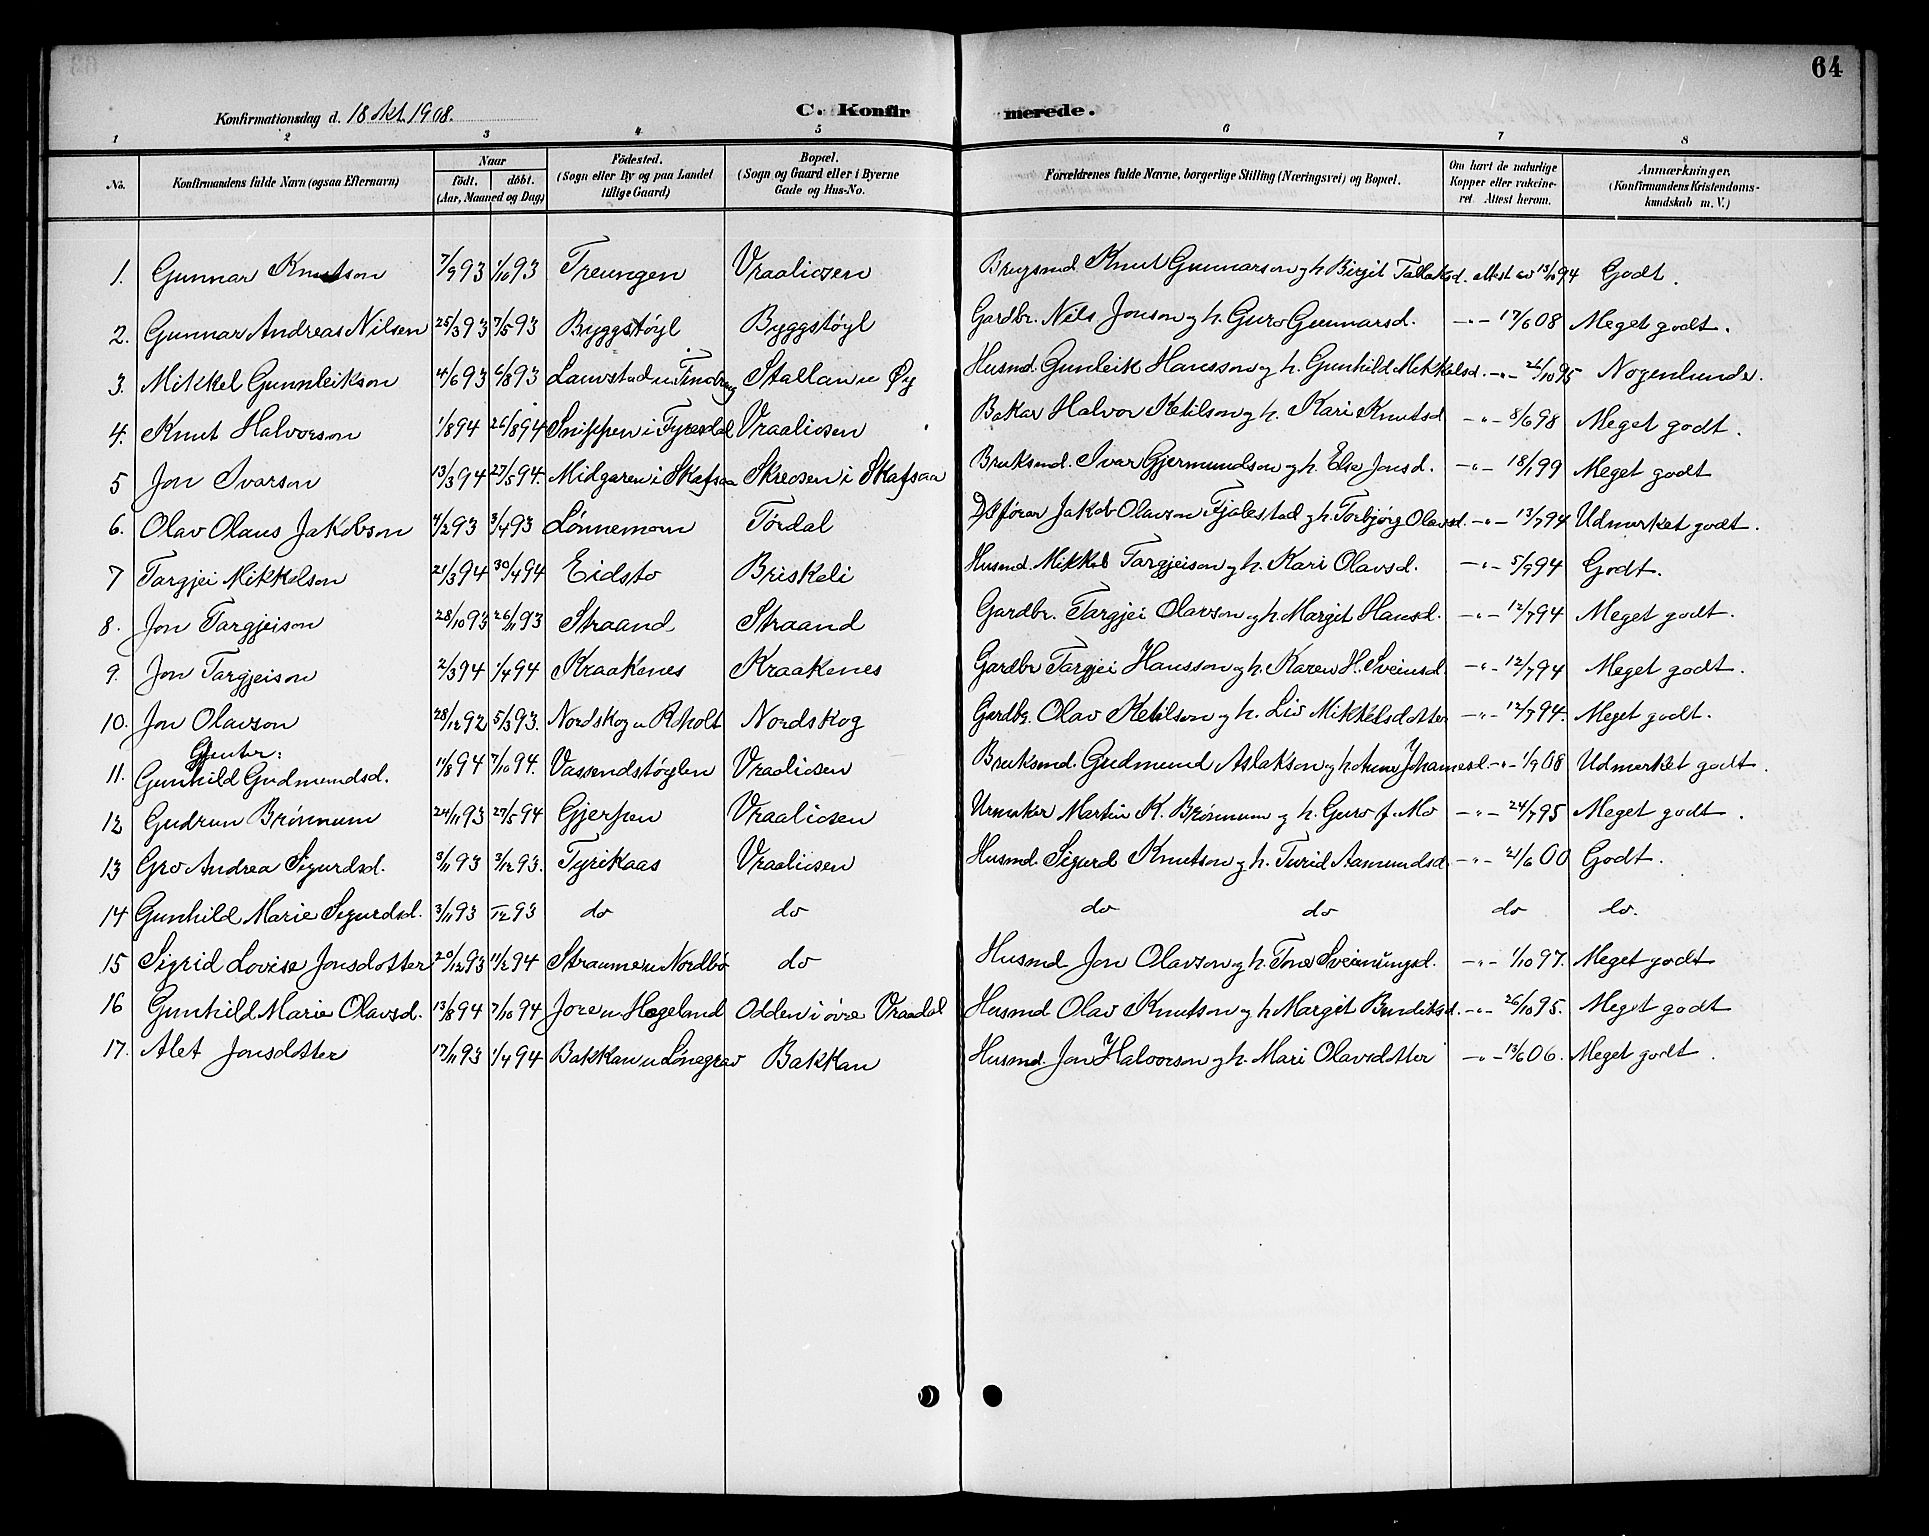 64
Konfirmationsdag d. 18 Okt. 1908.
C. Konfirmerede.
1 2 3 4 5 6 7 8
No. Konfirmandens fulde Navn (ogsaa Efternavn) Naar födt. döbt. (Aar, Maaned og Dag) Födested. (Sogn eller By og paa Landet tillige Gaard) Bopæl. (Sogn og Gaard eller i Byerne Gade og Hus-No. Forældrenes fulde Navne, borgerlige Stilling (Næringsvei) og Bopæl. Om havt de naturlige Kopper eller vakcineret. Attest herom. Anmærkninger. (Konfirmandens Kristendomskundskab m. V.)
1. Gunnar Knutson 7/9 93 1/10 93 Treungen Vraaliosen Brugsmd. Knut Gunnarson og h. Birgit Tallaksd. attest av 13/9 94 Godt.
2. Gunnar Andreas Nilsen 25/3 93 7/5 93 Byggstøyl Byggstøyl Gardbr. Nils Jonson og h. Guro Gunnarsd. -"- 17/6 08 Meget godt.
3. Mikkel Gunnleikson 4/6 93 6/8 93 Lauvstad u Stallan u Øy Husmd. Gunleik Hansson og h. Gunhild Mikkelsd. -"- 26/10 95 Nogenlunde.
4. Knut Halvorson 1/8 94 26/8 94 Snippen i Fyresdal Vraaliosen Baker Halvor Ketilson og h. Kari Knutsd -"- 8/6 98 Meget godt.
5 Jon Ivarson 13/3 94 27/5 94. Midgaren i Skafsaa Skreosen i Skafsaa Bruksmd. Ivar Gjermundson og h. Else Jonsd. -"- 18/1 99 Meget godt
6. Olav Olaus Jakobson 4/2 93 3/4 93 Lønnemom Tørdal Jakob Olavson Fjalestad og h. Torbjørg Olavsd. -"- 13/7 94 Udmerket godt.
7 Targjei Mikkelson 21/3 94 30/4 94 Eidsto Briskeli Husmd. Mikkel Targjeison og h. Kari Olavsd. -"- 5/7 94 Godt.
8. Jon Targjeison 28/10 93 26/11 93 Straand Straand Gardbr. Targjei Olavson og h. Margit Hansd. -"- 12/7 94 Meget godt.
9. Jon Targjeison 2/3 94 1/4 94 Kraakenes Kraakenes Gardbr Targjei Hansson og h. Karen H. Sveinsd. -"- 12/7 94 Meget godt.
10. Jon Olavson 28/12 92 5/3 93. Nordskog u Roholt Nordskog Gardbr. Olav Ketilson og h. Liv Mikkelsdotter -"- 12/7 94. Meget godt.
Gjenter:
11. Gunhild Gudmundsd. 11/8 94 7/10 94. Vassendstøylen Vraaliosen Bruksmd. Gudmund Aslakson og h. Anne Johannesd. -"- 1/9 08 Udmerket godt.
12 Gudrun Brønnum 24/11 93 27/5 94 Gjerpen Vraaliosen Urmaker Martin K. Brønnum og h. Guro f. Mo -"- 24/7 95 Meget godt.
13 Gro Andrea Sigurdsd. 3/11 93 3/12 93. Tyrikaas Vraaliosen Husmd Sigurd Knutson og h. Turid Aasmundsd. -"- 21/6 00 Godt.
14 Gunhild Marie Sigurdsd. 3/11 93 /12 93 do do do do do do.
15 Sigrid Lovise Jonsdotter 20/12 93 11/2 94 Straume u Nordbø do Husmd Jon Olavson og h. Tone Sveinungsd. -"- 1/10 97. Meget godt
16 Gunhild Marie Olavsd. 13/8 94 7/10 94 Jore u Hegeland Odden i øvre Vraadal Husmd Olav Knutson og h Margit Bendiksd. -"- 26/10 95. Meget godt
17. Alet Jonsdotter 17/11 93 1/4 94 Bakkan u Lønegrav Bakkan Husmd. Jon Halvorson og h. Mari Olavsdotter -"- 13/6 06. Meget godt.